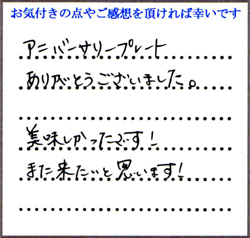 お気付きの点やご感想を頂ければ幸いです
アニバーサリープレート
ありがとうございました。
美味しかったです!
また来たいと思います!